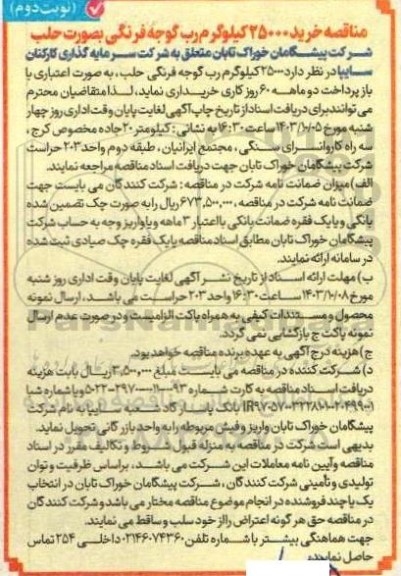 (نوبت دوم)
مناقصه خرید ۲۵۰۰۰ کیلوگرم رب گوجه فرنگی بصورت حلب
شرکت پیشگامان خوراک تابان متعلق به شرکت سرمایه گذاری کارکنان
سایپا در نظر دارد ۲۵۰۰۰ کیلوگرم رب گوجه فرنگی حلب، به صورت اعتباری با
باز پرداخت دو ماهه ۶۰ روز کاری خریداری نماید، لذا متقاضیان محترم
می توانند برای دریافت اسناد از تاریخ چاپ آگهی لغایت پایان وقت اداری روز چهار
شنبه مورخ ۱۴۰۳/۱۰/۰۵ ساعت ۱۶:۳۰ به نشانی: کیلومتر ۲۰ جاده مخصوص کرج،
سه راه کاروانسرای سنگی، مجتمع ایرانیان، طبقه دوم واحد ۲۰۳ حراست
شرکت پیشگامان خوراک تابان جهت دریافت اسناد مناقصه مراجعه نمایند.
الف) میزان ضمانت نامه شرکت در مناقصه: شرکت کنندگان می بایست جهت
ضمانت نامه شرکت در مناقصه، ۶۷۳,۵۰۰,۰۰۰ ریال را به صورت چک تضمین شده
بانکی و یا یک فقره ضمانت بانکی با اعتبار ۳ ماهه و یا واریز وجه به حساب شرکت
پیشگامان خوراک تابان مطابق اسناد مناقصه یا یک فقره چک صیادی ثبت شده
در سامانه ارائه نمایند.
ب) مهلت ارائه اسناد از تاریخ نشر آگهی لغایت پایان وقت اداری روز شنبه
مورخ ۱۴۰۳/۱۰/۰۸ ساعت ۱۶:۳۰ واحد ۲۰۳ حراست می باشد، ارسال نمونه
محصول و مستندات کیفی به همراه پاکت الزامیست و در صورت عدم ارسال
نمونه پاکت ج بازگشایی نمی گردد.
ج) هزینه درج آگهی به عهده برنده مناقصه خواهد بود.
د) شرکت کننده در مناقصه می بایست مبلغ ۳,۵۰۰,۰۰۰ ریال بابت هزینه
دریافت اسناد مناقصه به کارت شماره و یا شماره شبا
بانک پاسارگاد شعبه سایپا به نام شرکت
پیشگامان خوراک تابان واریز و فیش مربوطه را به واحد بازرگانی تحویل نماید.
بدیهی است شرکت در مناقصه به منزله قبول شروط و تکالیف مقرر در اسناد
مناقصه و آیین نامه معاملات این شرکت می باشد، براساس ظرفیت و توان
تولیدی و تأمینی شرکت کنندگان، شرکت پیشگامان خوراک تابان در انتخاب
یک یا چند فروشنده در انجام موضوع مناقصه مختار می باشد و شرکت کنندگان
در مناقصه حق هر گونه اعتراض را از خود سلب و ساقط می نمایند.
جهت هماهنگی بیشتر با شماره تلفن ۰۲۱۴۶۰۷۴۳۶۰ داخلی ۲۵۴ تماس
حاصل نمایند